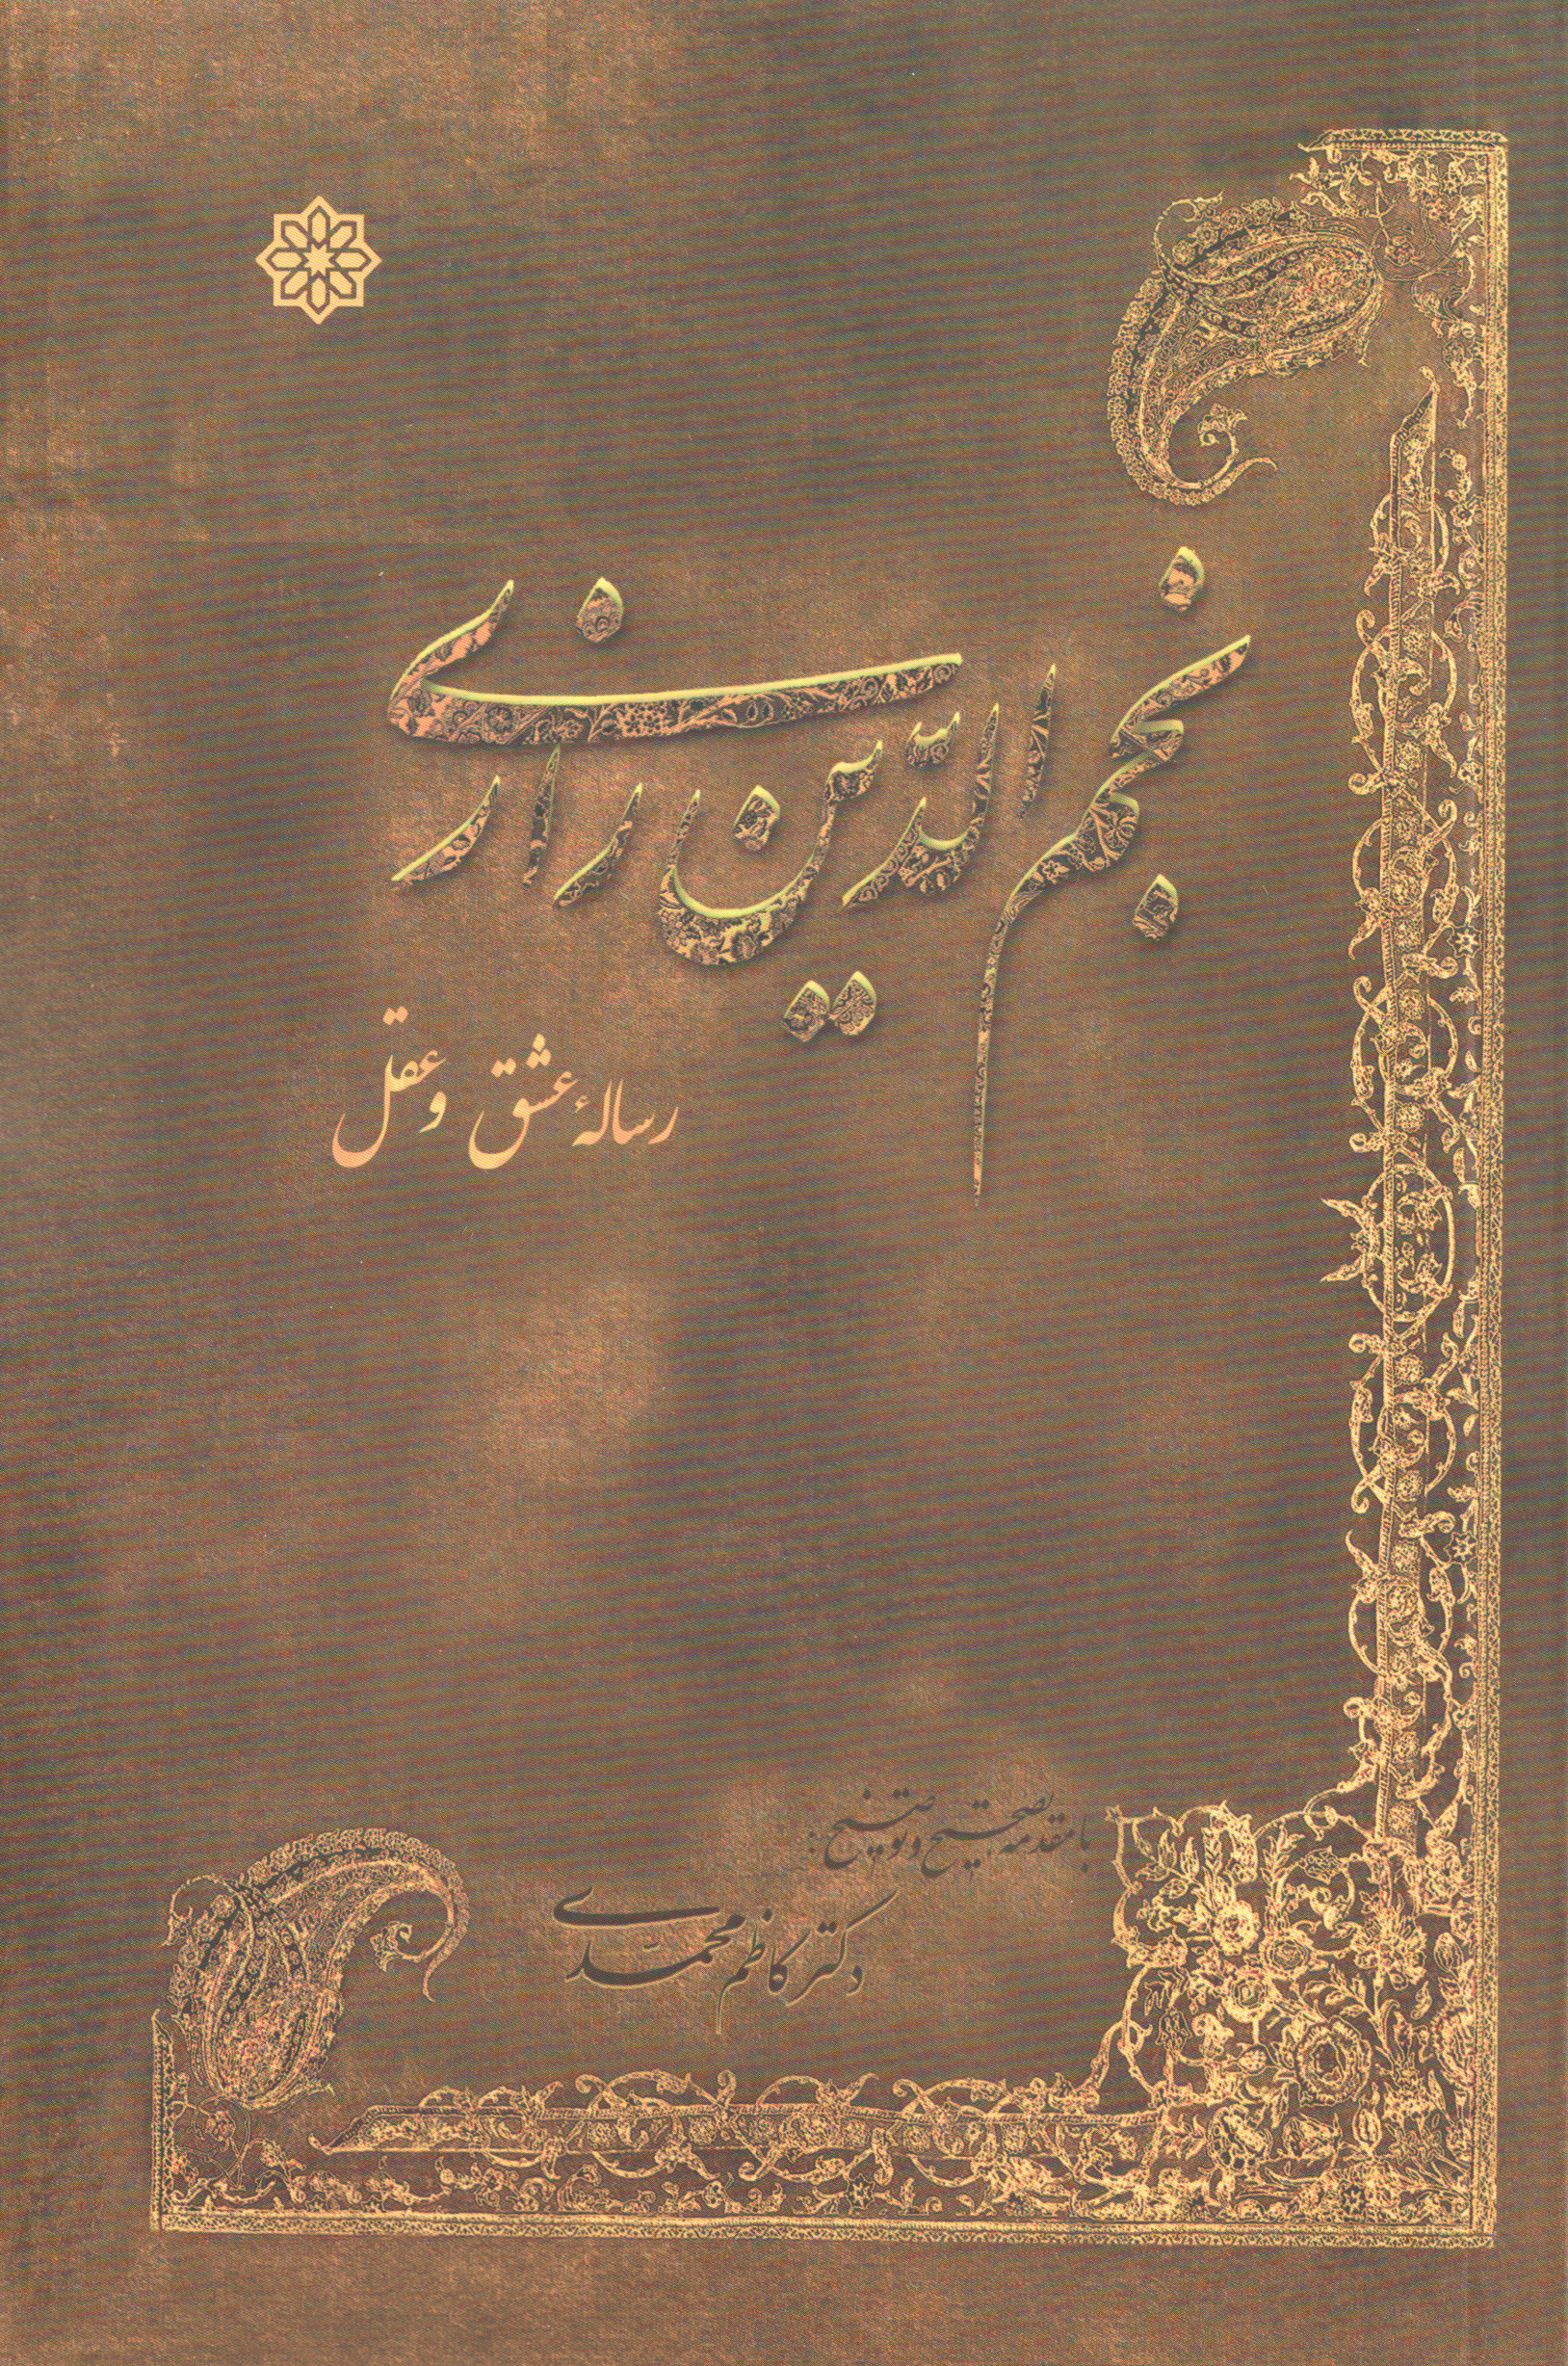 نجم الدّین رازی
رسالهٔ عشق و عقل
با مقدمه، تصحیح و توضیح:
دکتر کاظم محمّدی